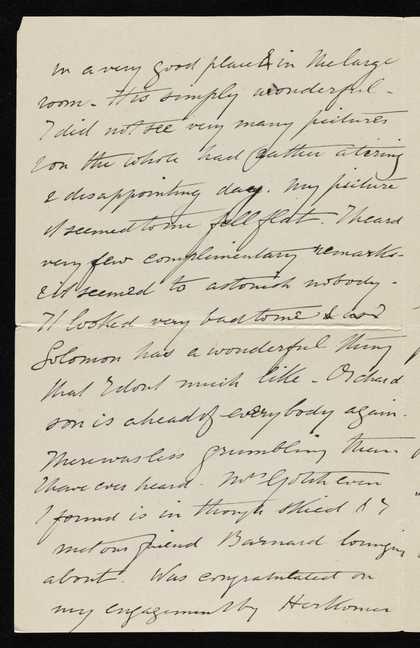 in a very good place & in the large
room - It is simply wonderful -
I did not see very many pictures
& on the whole had rather a tiring
& disappointing day. My picture
it seemed to me fell flat. I heard
very few complimentary remarks -
& it seemed to astonish nobody -
It looked very bad to me & low
Solomon has a wonderful thing
that I dont much like - Orchard
son is ahead of everybody again.
There was less grumbling than
I have ever heard. Mrs Gotch even
I found is in though skied &
met our friend Barnard lounging
about. Was congratulated on
my engagement by Herkomer